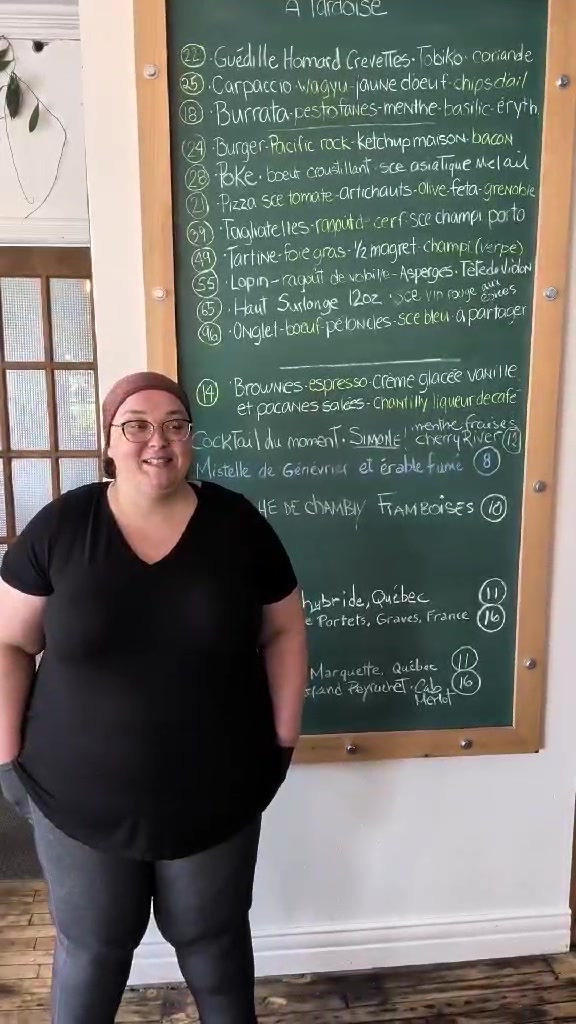 À l'ardoise
22 Guédille Homard Crevettes · Tobiko · coriande
25 Carpaccio · wagyu · jaune doeuf · chips dail
18 Burrata · pestofanes · menthe · basilic · éryth.
24 Burger · Pacific rock · Ketchup maison · bacon
28 Poké · boeuf croustillant · sce asiatique Mel ail
21 Pizza sce tomate · artichauts · Olive · feta · grenobie
39 Tagliatelles · ragoût de cerf · sce champi porto
49 Tartine · foie gras · 1/2 magret · champi (verpe)
55 Lapin · ragoût de volaille · Asperges · Tête de Violon
65 Haut Surlonge 12oz · sce vin rouge aux épices
96 Onglet · boeuf · pétoncles · sce bleu · à partager
14 Brownies · espresso · crème glacée vanille
et pacanes salées · chantilly liqueur de café
Cocktail du moment · Simone! menthe fraises Cherry River 13
Mistelle de Génévrier et érable fumé 8
DE CHAMBLY FRAMBOISES 10
hybride, Québec 11
Portets, Graves, France 16
Marquette, Québec 11
Peyruchet · Cab Merlot 16